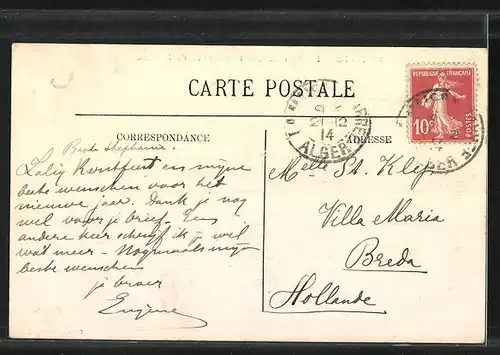 CARTE POSTALE
CORRESPONDANCE
ADRESSE
REPUBLIQUE FRANÇAISE
10
ALGER
14
Beste Stephanie.
Zalig Kerstfeest en mijne
beste wenschen voor het
nieuwe jaar. Dank je nog
wel voor je brief. Een
andere keer schrijf ik je wel
wat meer - Nogmaals mijne
beste wenschen
je broer
Eugène
Melle St. Kleij
Villa Maria
Breda
Hollande